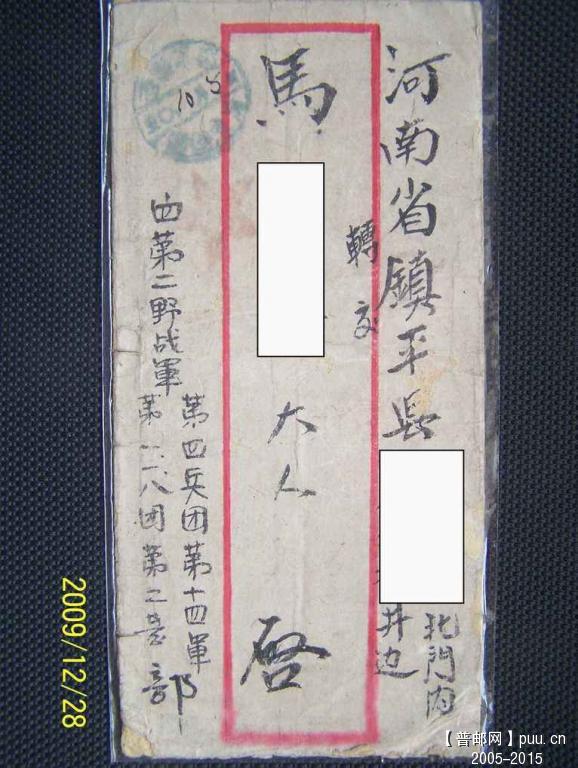 河南省鎮平县
北門内
井边
轉交
馬
大人
启
由第二野战軍
第四兵团第十四軍
第一二八团第二营部
10 5
2009/12/28
【普邮网】puu.cn
2005-2015